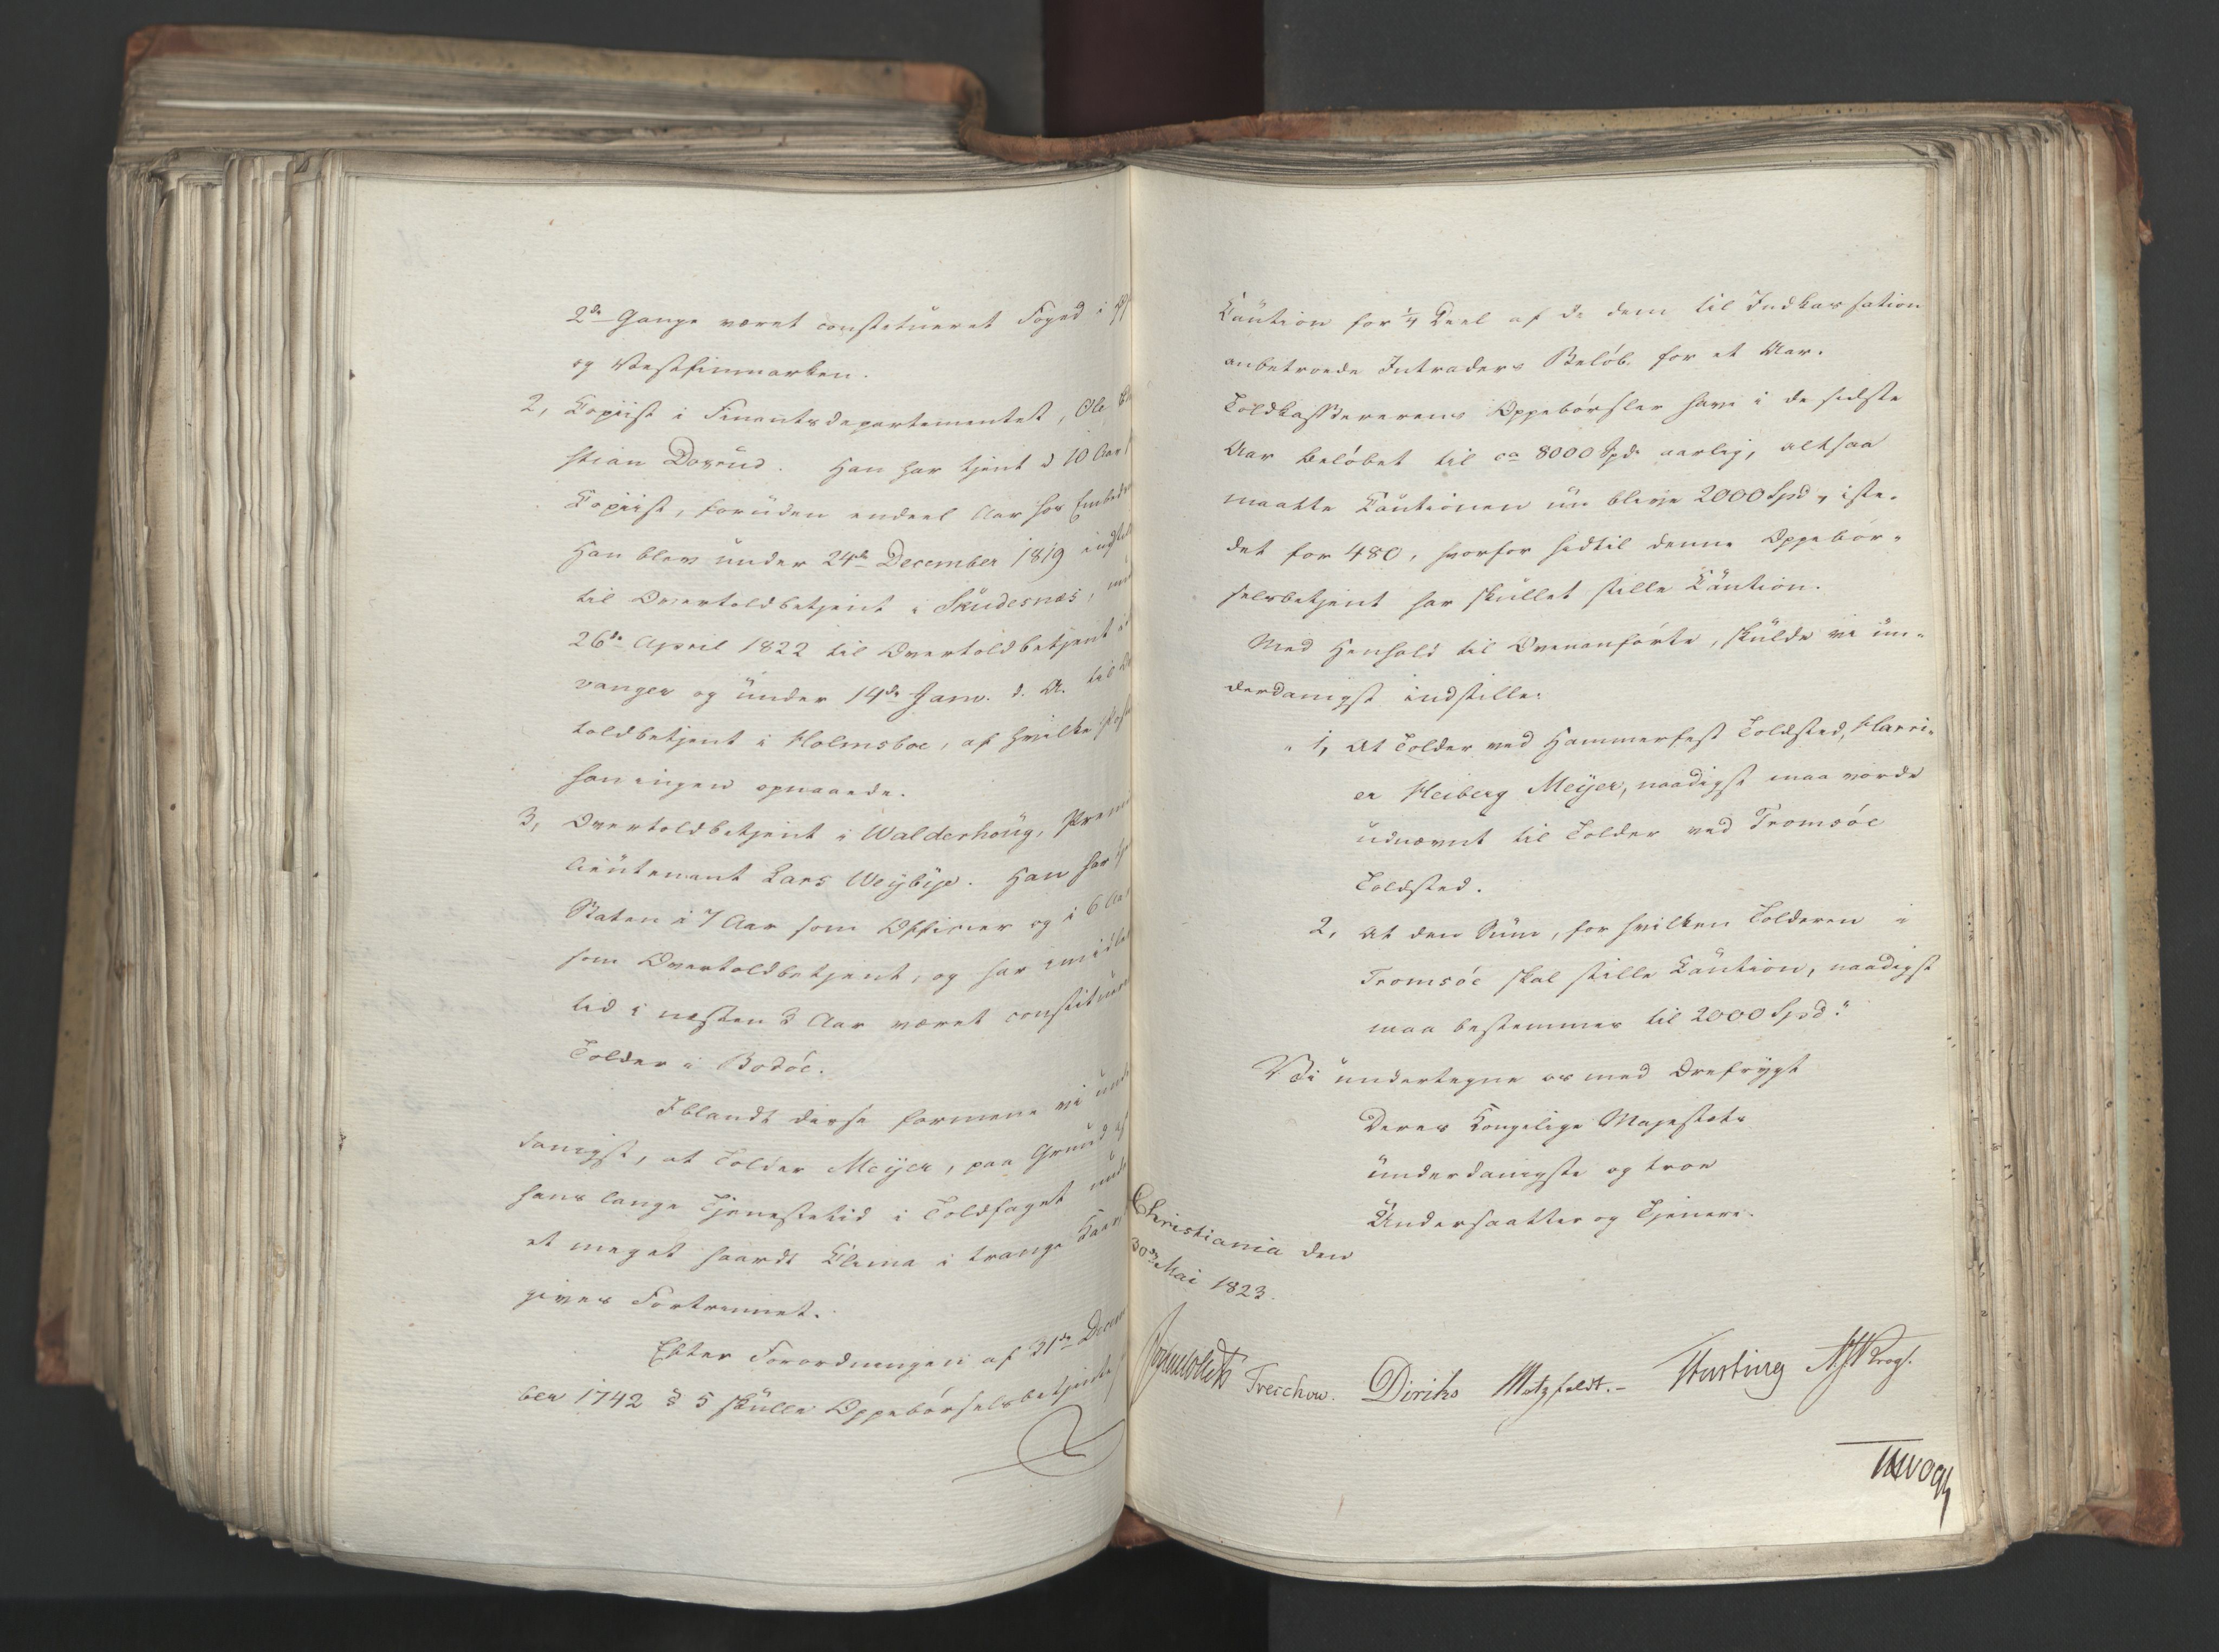 2de Gange været constitueret Foged i
og Vestfinmarken.
2, Copiist i Finantsdepartementet, Ole
stian Dorrud. Han har tjent i 10 Aar
Copiist, foruden endeel Aar hos
Han blev under 24de December 1819
til Overtoldbetjent i Skudesnæs,
26de April 1822 til Overtoldbetjent
vanger og under 14de Janv. d. A. til
toldbetjent i Holmsboe, af hvilke
han ingen opnaaede.
3, Overtoldbetjent i Walderhoug,
lieutenant Lars Weybye. Han har
Staten i 7 Aar som Officier og i 6
som Overtoldbetjent, og har
tid i næsten 3 Aar været
Tolder i Bodöe.
Iblandt disse formene vi
danigst, at Tolder Meyer, paa Grund af
hans lange Tjenestetid i Toldfaget
et meget haardt Clima i trange Kaar,
gives Fortrinnet.
Efter Forordningen af 31de
ber 1742 § 5 skulle Oppebörselsbetjente
Caution for 1/4 Deel af de dem til Indkassation
anbetroede Intraders Belöb for et Aar.
Toldkassererens Oppebörsler have i de sidste
Aar belöbet til ca 8000 Spd. aarlig, altsaa
maatte Cautionen nu blive 2000 Spd., iste-
det for 480, hvorfor hidtil denne Oppebör-
selsbetjent har skullet stille Caution.
Med Henhold til Ovenanförte, skulde vi un-
derdanigst indstille:
„1, At Tolder ved Hammerfest Toldsted, Harri-
er Heiberg Meyer, naadigst maa vorde
udnævnt til Tolder ved Tromsöe
Toldsted.
2, At den Sum, for hvilken Tolderen i
Tromsöe skal stille Caution, naadigst
maa bestemmes til 2000 Spd."
Vi undertegne os med Ærefrygt
Deres Kongelige Majestæts
underdanigste og troe
Undersaatter og Tjenere.
Christiania den
30te Mai 1823.
Treschow. Diriks Motzfeldt.- Fasting Krog.
Vogt